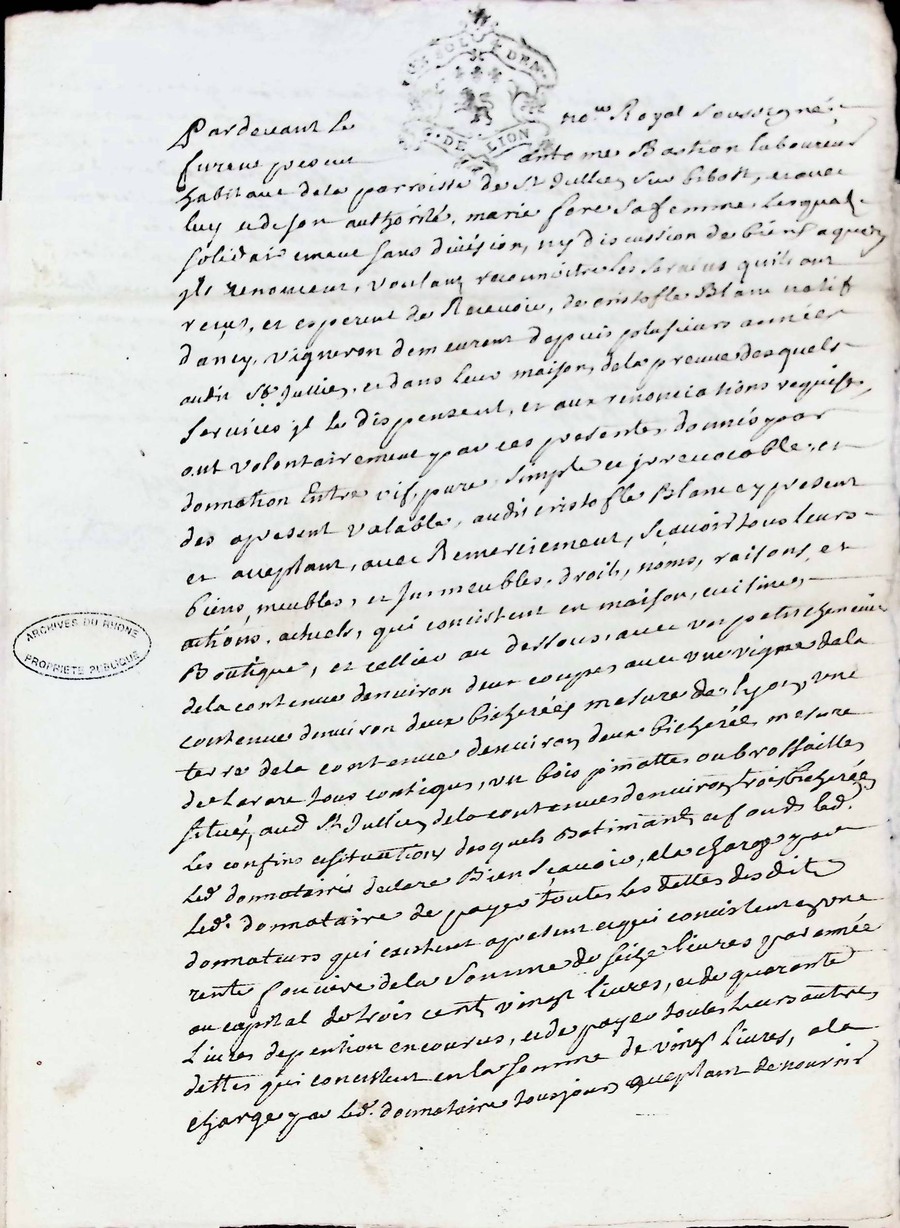 DEN
DE LION
Pardevant le no.re Royal soussigné,
furent present antoine Bastion laboureur
habitant de la parroisse de St Jullien sur bibost, et avec
luy et de son authorité, marie fore sa femme lesquels
solidairement sans division, ny discussion de biens a quoy
ils renoncent, voulant reconnoitre les services qu'ils ont
reçus, et esperent de Recevoir, de cristofle Blanc natif
dancy, vigneron demeurent depuis plusieurs années
audit St Jullien, et dans leur maison, de la preuve desquels
services jl le dispensent, et aux renonciations requises,
ont volontairement par ces presentes donnés par
donnation Entre vif, pure, simple et jrrevocable, et
des apresent valable, audit cristofle Blanc cy present
et acceptant, avec Remerciement, sçavoir tous leurs
biens, meubles, et jmmeubles, droits, noms, raisons, et
actions, actuels, qui consistent en maison, cuisine,
Boutique, et cellier au dessous, avec un petit chenevier
de la contenue denviron deux coupes avec une vigne de la
contenue denviron deux bicherées mesure de lyon, une
terre de la contenue denviron deux bicherées mesure
de tarare tous contigus, un bois pinattes ou brossailles
situés, aud St Jullien de la contenues denviron trois bicherées
les confins et situations desquels Batimants et fonds led.
led. donnataire declare Bien sçavoir, a la charge par
led. donnataire de payer toutes les dettes des dits
donnateurs qui existent apresent et qui consistent en une
rente fonciere de la somme de seize livres par année
au capital de trois cent vingt livres, et de quarante
livres de pention encourus, et de payer toutes leurs autres
dettes qui consistent en la somme de vingt livres, a la
charge par led. donnataire toujours acceptant de nourrir
ARCHIVES DU RHONE
PROPRIÉTÉ PUBLIQUE